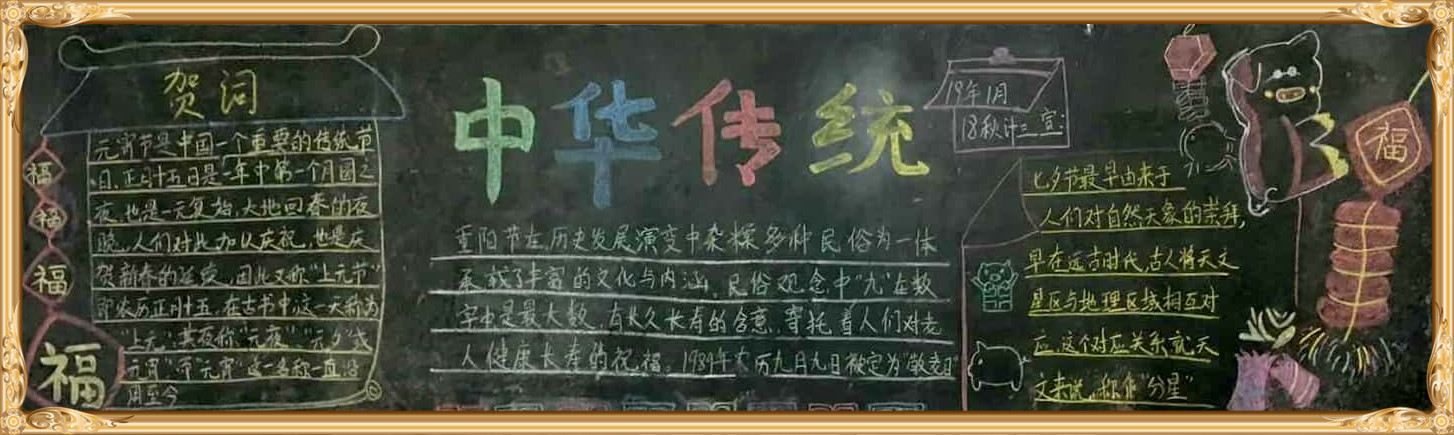 贺词
元宵节是中国一个重要的传统节
日,正月十五日是一年中第一个月圆之
夜,也是一元复始,大地回春的夜
晚,人们对此加以庆祝,也是庆
贺新春的延续,因此又称"上元节"
即农历正月十五,在古书中,这一天称为
"上元",其夜称"元夜""元夕"或
元宵"而"元宵"这一名称一直沿
用至今
福
福
福
福
中华传统
重阳节在历史发展演变中杂糅多种民俗为一体
承载了丰富的文化与内涵,民俗观念中"九"在数
字中是最大数,有长久长寿的含意,寄托着人们对老
人健康长寿的祝福。1989年农历九月九日被定为"敬老日"
19年1月
18秋计三 宣:
七夕节最早由来于
人们对自然天象的崇拜,
早在远古时代,古人将天文
星区与地理区域相互对
应,这个对应关系就天
文来说,称作"分星"
福